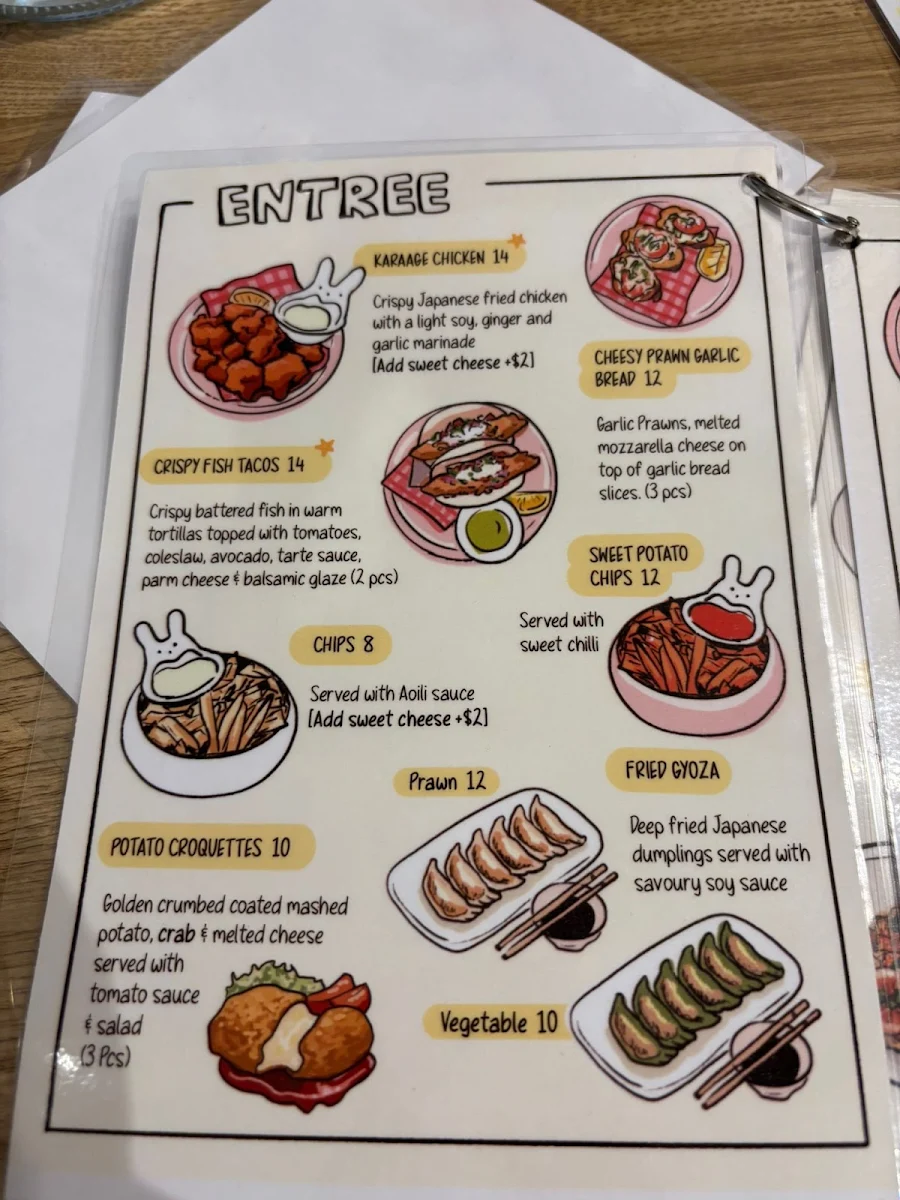 ENTREE
KARAAGE CHICKEN 14
Crispy Japanese fried chicken
with a light soy, ginger and
garlic marinade
[Add sweet cheese +$2]
CHEESY PRAWN GARLIC
BREAD 12
Garlic Prawns, melted
mozzarella cheese on
top of garlic bread
slices. (3 pcs)
CRISPY FISH TACOS 14
Crispy battered fish in warm
tortillas topped with tomatoes,
coleslaw, avocado, tarte sauce,
parm cheese & balsamic glaze (2 pcs)
SWEET POTATO
CHIPS 12
Served with
sweet chilli
CHIPS 8
Served with Aoili sauce
[Add sweet cheese +$2]
FRIED GYOZA
Deep fried Japanese
dumplings served with
savoury soy sauce
Prawn 12
Vegetable 10
POTATO CROQUETTES 10
Golden crumbed coated mashed
potato, crab & melted cheese
served with
tomato sauce
& salad
(3 Pcs)